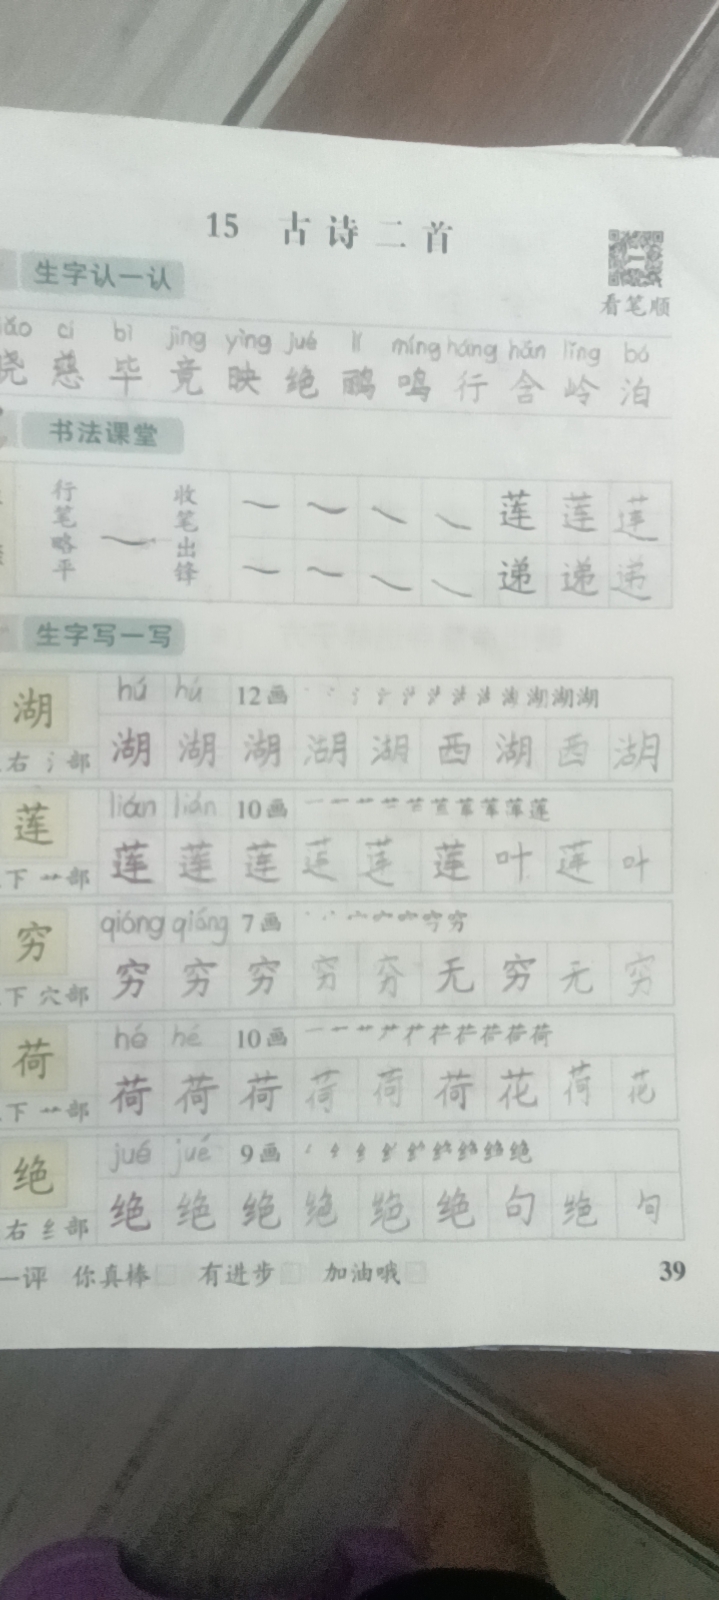 15 古诗二首
看笔顺
生字认一认
cí bì jìng yìng jué lí míng háng hán lǐng bó
晓 慈 毕 竟 映 绝 鹂 鸣 行 含 岭 泊
书法课堂
行笔略平 收笔出锋 莲 莲 莲
递 递 递
生字写一写
湖 hú hú 12画
右 氵部 湖 湖 湖 湖 湖 西 湖 西 湖
莲 lián lián 10画
下 艹部 莲 莲 莲 莲 莲 莲 叶 莲 叶
穷 qióng qióng 7画
下 穴部 穷 穷 穷 穷 穷 无 穷 无 穷
荷 hé hé 10画
下 艹部 荷 荷 荷 荷 荷 荷 花 荷 花
绝 jué jué 9画
右 纟部 绝 绝 绝 绝 绝 绝 句 绝 句
一评 你真棒 有进步 加油哦 39